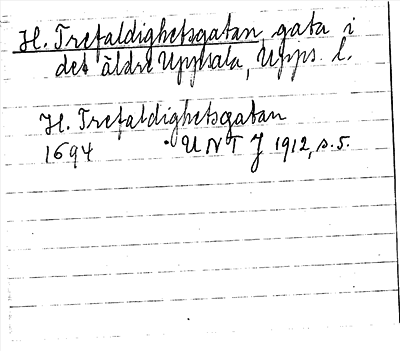 H. Trefaldighetsgatan gata i
det äldre Uppsala, Upps. l.
H. Trefaldighetsgatan
1694 UNTJ 1912, s. 5.